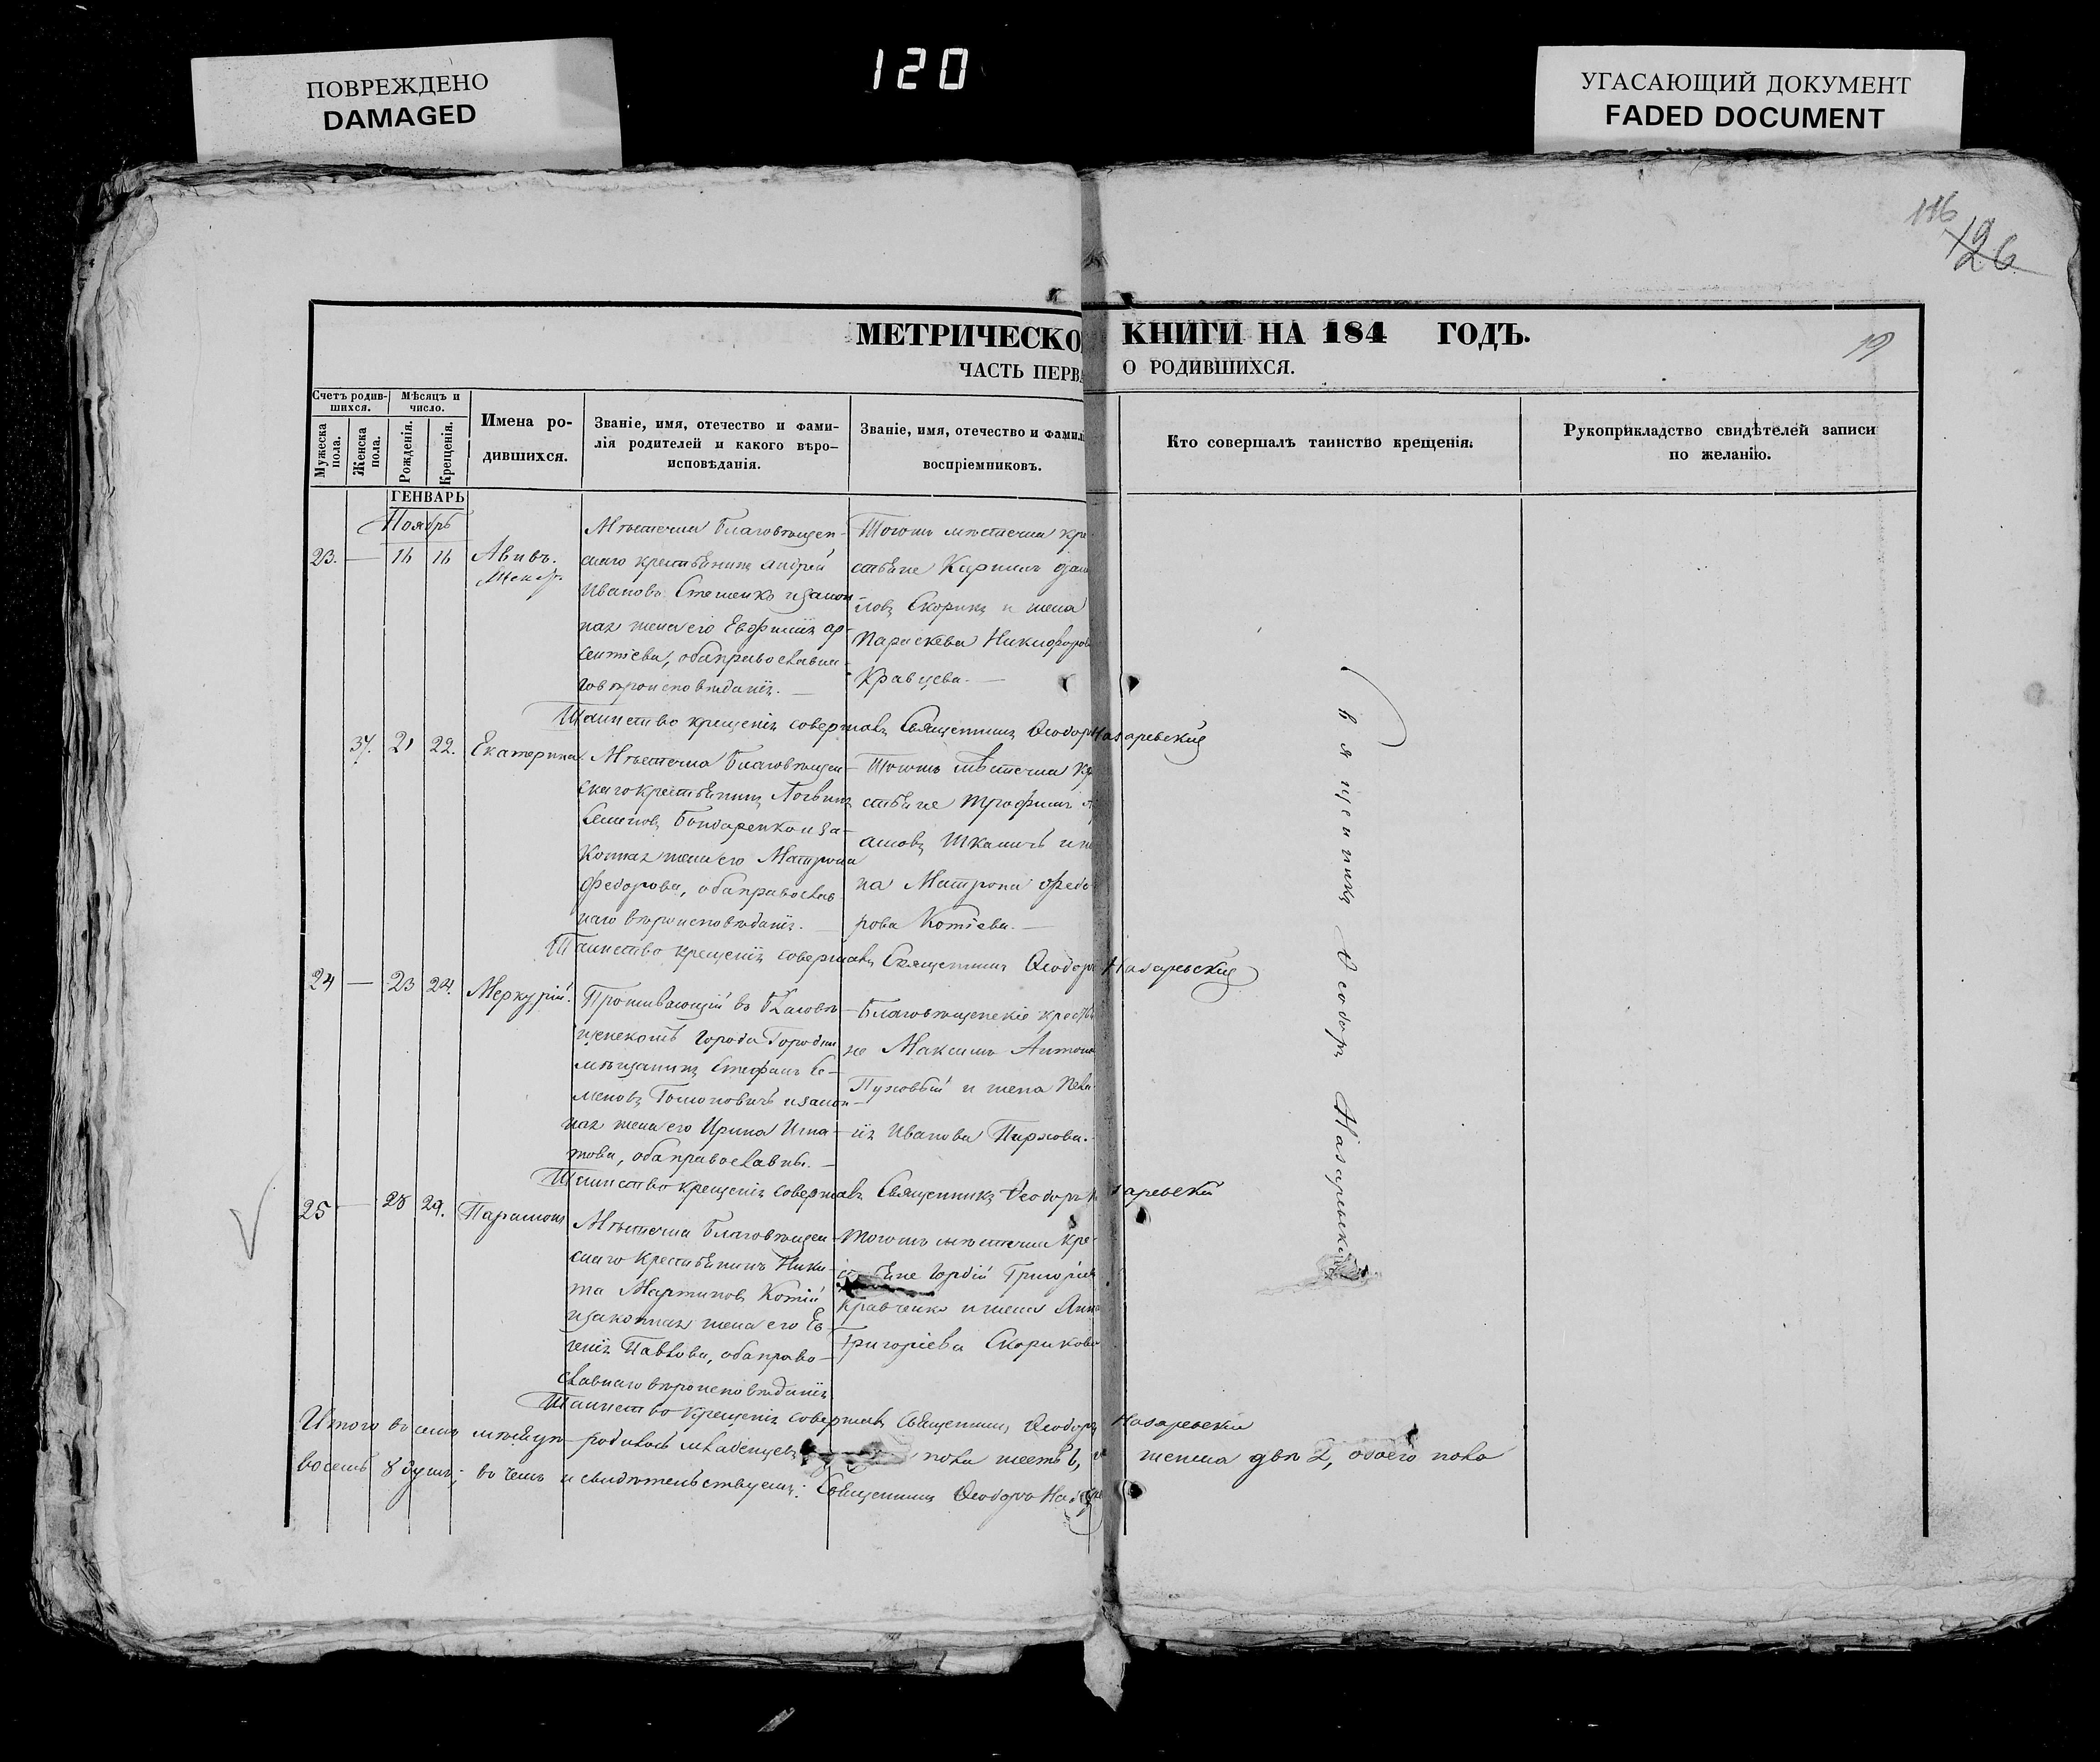 ПОВРЕЖДЕНО
DAMAGED
120
УГАСАЮЩИЙ ДОКУМЕНТ
FADED DOCUMENT
116
126
19
МЕТРИЧЕСКО КНИГИ НА 184 ГОДЪ.
ЧАСТЬ ПЕРВА О РОДИВШИХСЯ.
Счетъ родив-
шихся.
Мужеска
пола.
Женска
пола.
Мѣсяцъ и
число.
Рожденія.
Крещенія.
Имена ро-
дившихся.
Званіе, имя, отечество и фами-
лія родителей и какого вѣро-
исповѣданія.
Званіе, имя, отечество и фамил
воспріемниковъ.
Кто совершалъ таинство крещенія.
Рукоприкладство свидѣтелей записи
по желанію.
ГЕНВАРЬ
Ноябрь
23. — 16 16 Авивъ.
Мѣстечка Благовѣщен-
скаго крестьянинъ Андрей
Ивановъ Стешенко и закон
ная жена его Евфимія Ар-
сентіева, оба православна-
го вѣроисповѣданія. —
Тогожъ мѣстечка кре
стьяне Карпъ
ловъ Скорикъ и жена
Параскева Никифоров
Кравцева. —
Таинство крещенія совершалъ Священникъ Ѳеодоръ Назаревскій
37. 21 22. Екатерина
Мѣстечка Благовѣщен-
скаго крестьянинъ Логвинъ
Семеновъ Бондаренко и за-
конная жена его Матрона
Федорова, оба православ
наго вѣроисповѣданія. —
Тогожъ мѣстечка кр
стьяне Трофимъ
амовъ и же
на Матрона Федо
рова Котіева. —
Таинство крещенія совершалъ Священникъ Ѳеодоръ Назаревскій
24 — 23 24. Меркурій.
Проживающій въ Благовѣ
щенскомъ города Городни
мѣщанинъ Стефанъ Се-
меновъ и закон-
ная жена его Ирина Игна-
това, оба православны. —
Благовѣщенскіе крестья
не Максимъ Антоно
Пужовый и жена Пела
ія Иванова
Таинство крещенія совершалъ Священникъ Ѳеодоръ Назаревскій
25 — 28 29. Парамонъ
Мѣстечка Благовѣщен-
скаго крестьянинъ Ники-
та Мартиновъ Котій
и законная жена его Ев
генія Павлова, оба право-
славнаго вѣроисповѣданія
Тогожъ мѣстечка кре
стьяне Гордій Григоріев
Кравченко и жена Анна
Григоріева Скорикова
Таинство крещенія совершалъ Священникъ Ѳеодоръ Назаревскій
Итого въ семъ мѣсяцѣ родилось младенцевъ пола шесть 6, женска двѣ 2, обоего пола
восемь 8 душъ; въ чемъ и свидѣтельствуемъ: Священникъ Ѳеодоръ Назаре
вященникъ Ѳеодоръ Назаревскі